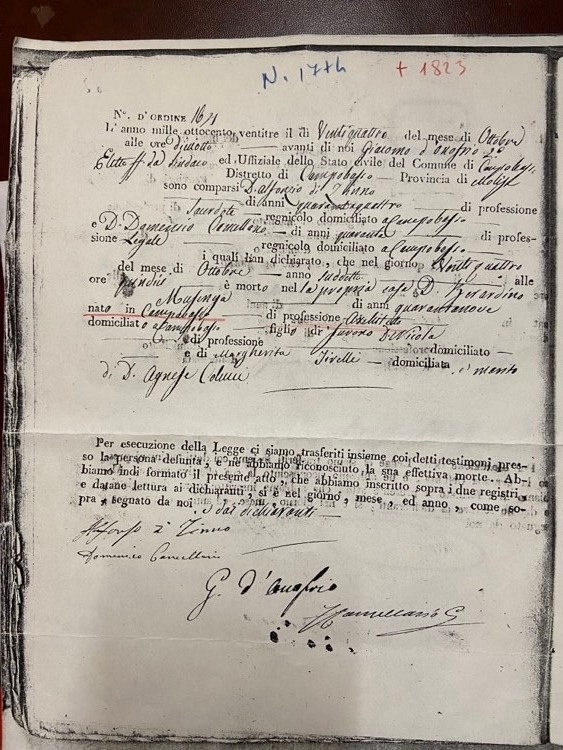 N. 1774
+ 1823
N°. D'ORDINE
L'anno mille ottocento ventitre il dì Ventiquattro del mese di Ottobre
alle ore avanti di noi Giacomo d'Onofrio 2°
Eletto ff. da Sindaco ed Uffiziale dello Stato civile del Comune di Campobasso
Distretto di Campobasso Provincia di Molise
sono comparsi D. Alfonzio di Zinno
di anni quarantaquattro di professione
Sacerdote regnicolo domiciliato a Campobasso
e D. Domenico Cancellario di anni quaranta di profes-
sione Legale regnicolo domiciliato a Campobasso
i quali han dichiarato, che nel giorno Ventiquattro
del mese di Ottobre anno suddetto alle
ore quindici è morto nella propria casa D. Berardino
Musenga di anni quarantanove
nato in Campobasso di professione Architetto
domiciliato a Campobasso figlio di Nicola
di professione domiciliato
e di Margherita domiciliata marito
di D. Agnese Colucci
Per esecuzione della Legge ci siamo trasferiti insieme coi detti testimonj pres-
so la persona defunta, e ne abbiamo riconosciuto la sua effettiva morte. Ab-
biamo indi formato il presente atto, che abbiamo inscritto sopra i due registri,
e datane lettura ai dichiaranti, si è nel giorno, mese, ed anno, come so-
pra segnato da noi e dai dichiaranti
Alfonso di Zinno
Domenico Cancellario
G. d'Onofrio